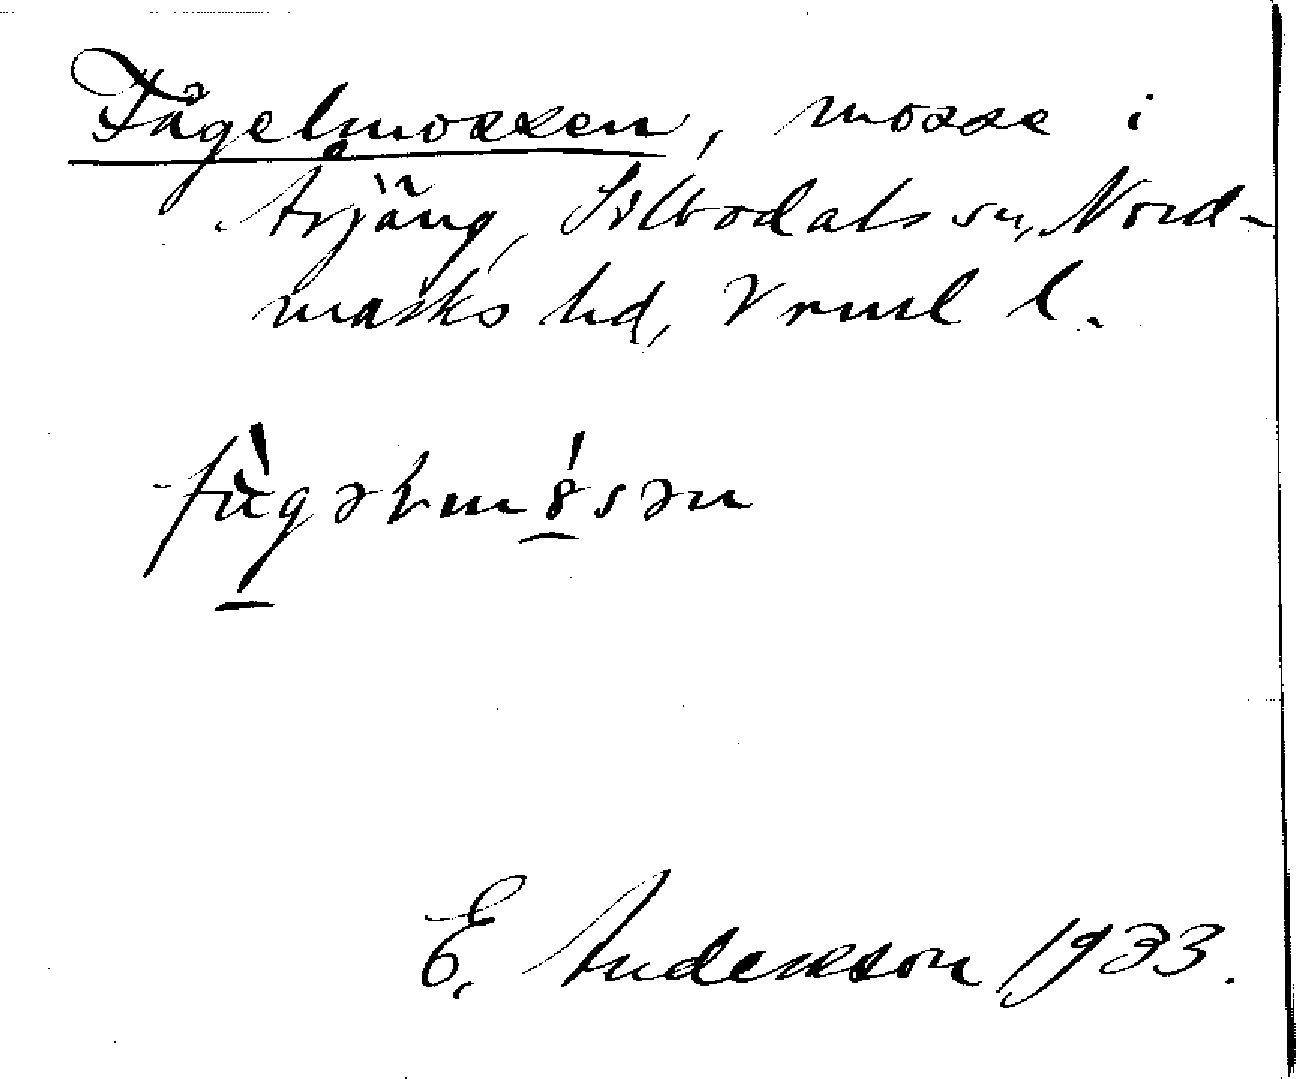 Fågelmossen, mosse i
Årjäng, Silbodals sn, Nord-
marks hd, Vrml l.
fùgəlmósən
E. Andersson 1933.